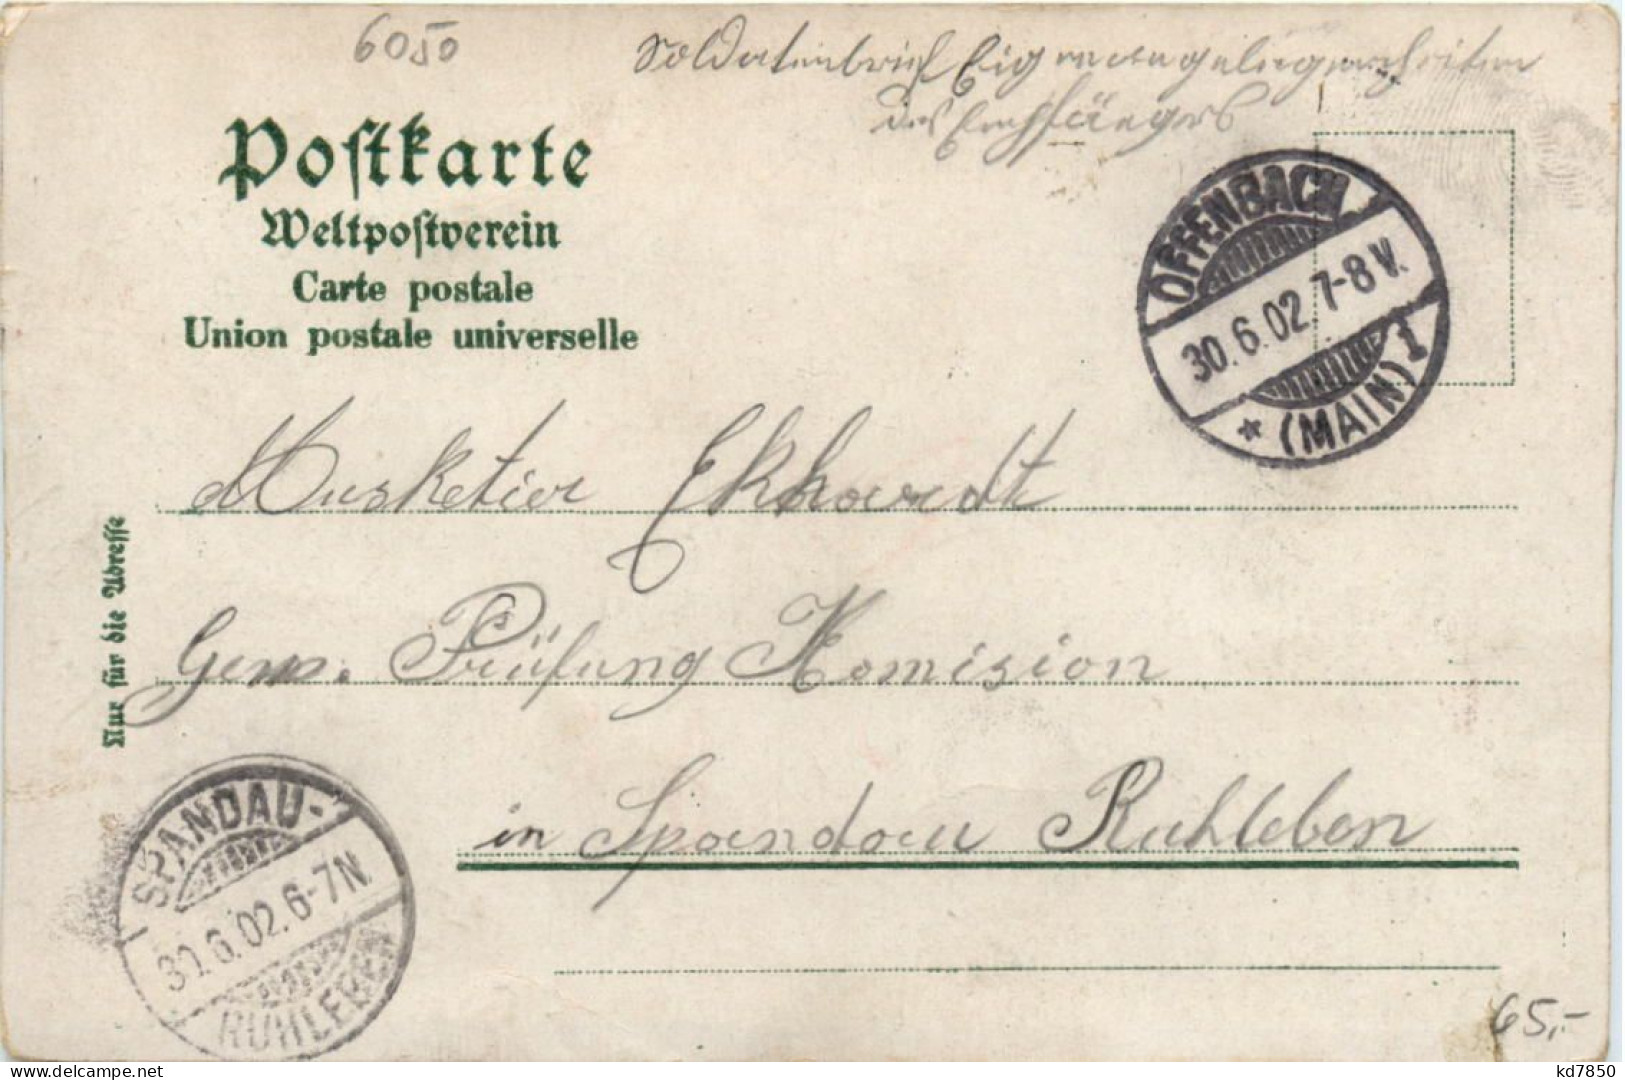 6050
Soldatenbrief Eigene Angelegenheiten
des Empfängers
Postkarte
Weltpostverein
Carte postale
Union postale universelle
OFFENBACH
30.6.02. 7-8 V.
* (MAIN) 1
Musketier Ekhardt
Gew. Prüfung Komision
in Spandau Ruhleben
Nur für die Adresse
SPANDAU-
30.6.02. 6-7N.
RUHLEBEN
65,-
kd7850